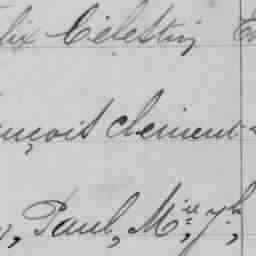 lix Célestin
ançois Clément
, Paul, M.ie, Jh,